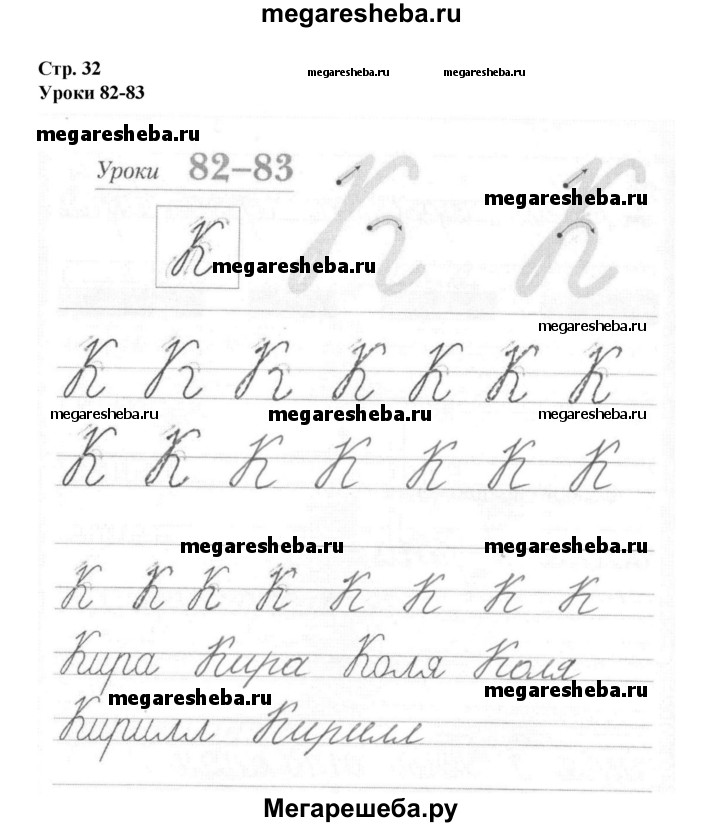 megaresheba.ru
Стр. 32 megaresheba.ru megaresheba.ru
Уроки 82-83
megaresheba.ru
Уроки 82–83
megaresheba.ru
К К К
megaresheba.ru
megaresheba.ru
К К К К К К К
megaresheba.ru megaresheba.ru megaresheba.ru
К К К К К К К
megaresheba.ru megaresheba.ru
К К К К К К К К
Кира Кира Коля Коля
megaresheba.ru megaresheba.ru
Кирилл Кирилл
Мегарешеба.ру